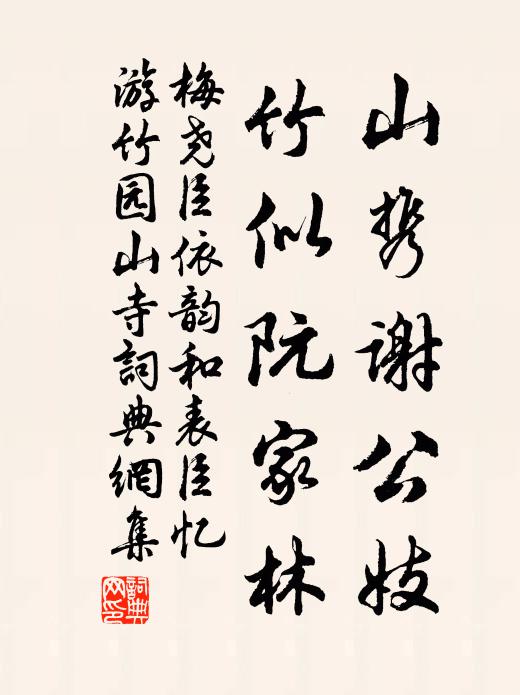 山携谢公妓
竹似阮家林
梅尧臣依韵和表臣忆
游竹园山寺詞典網集